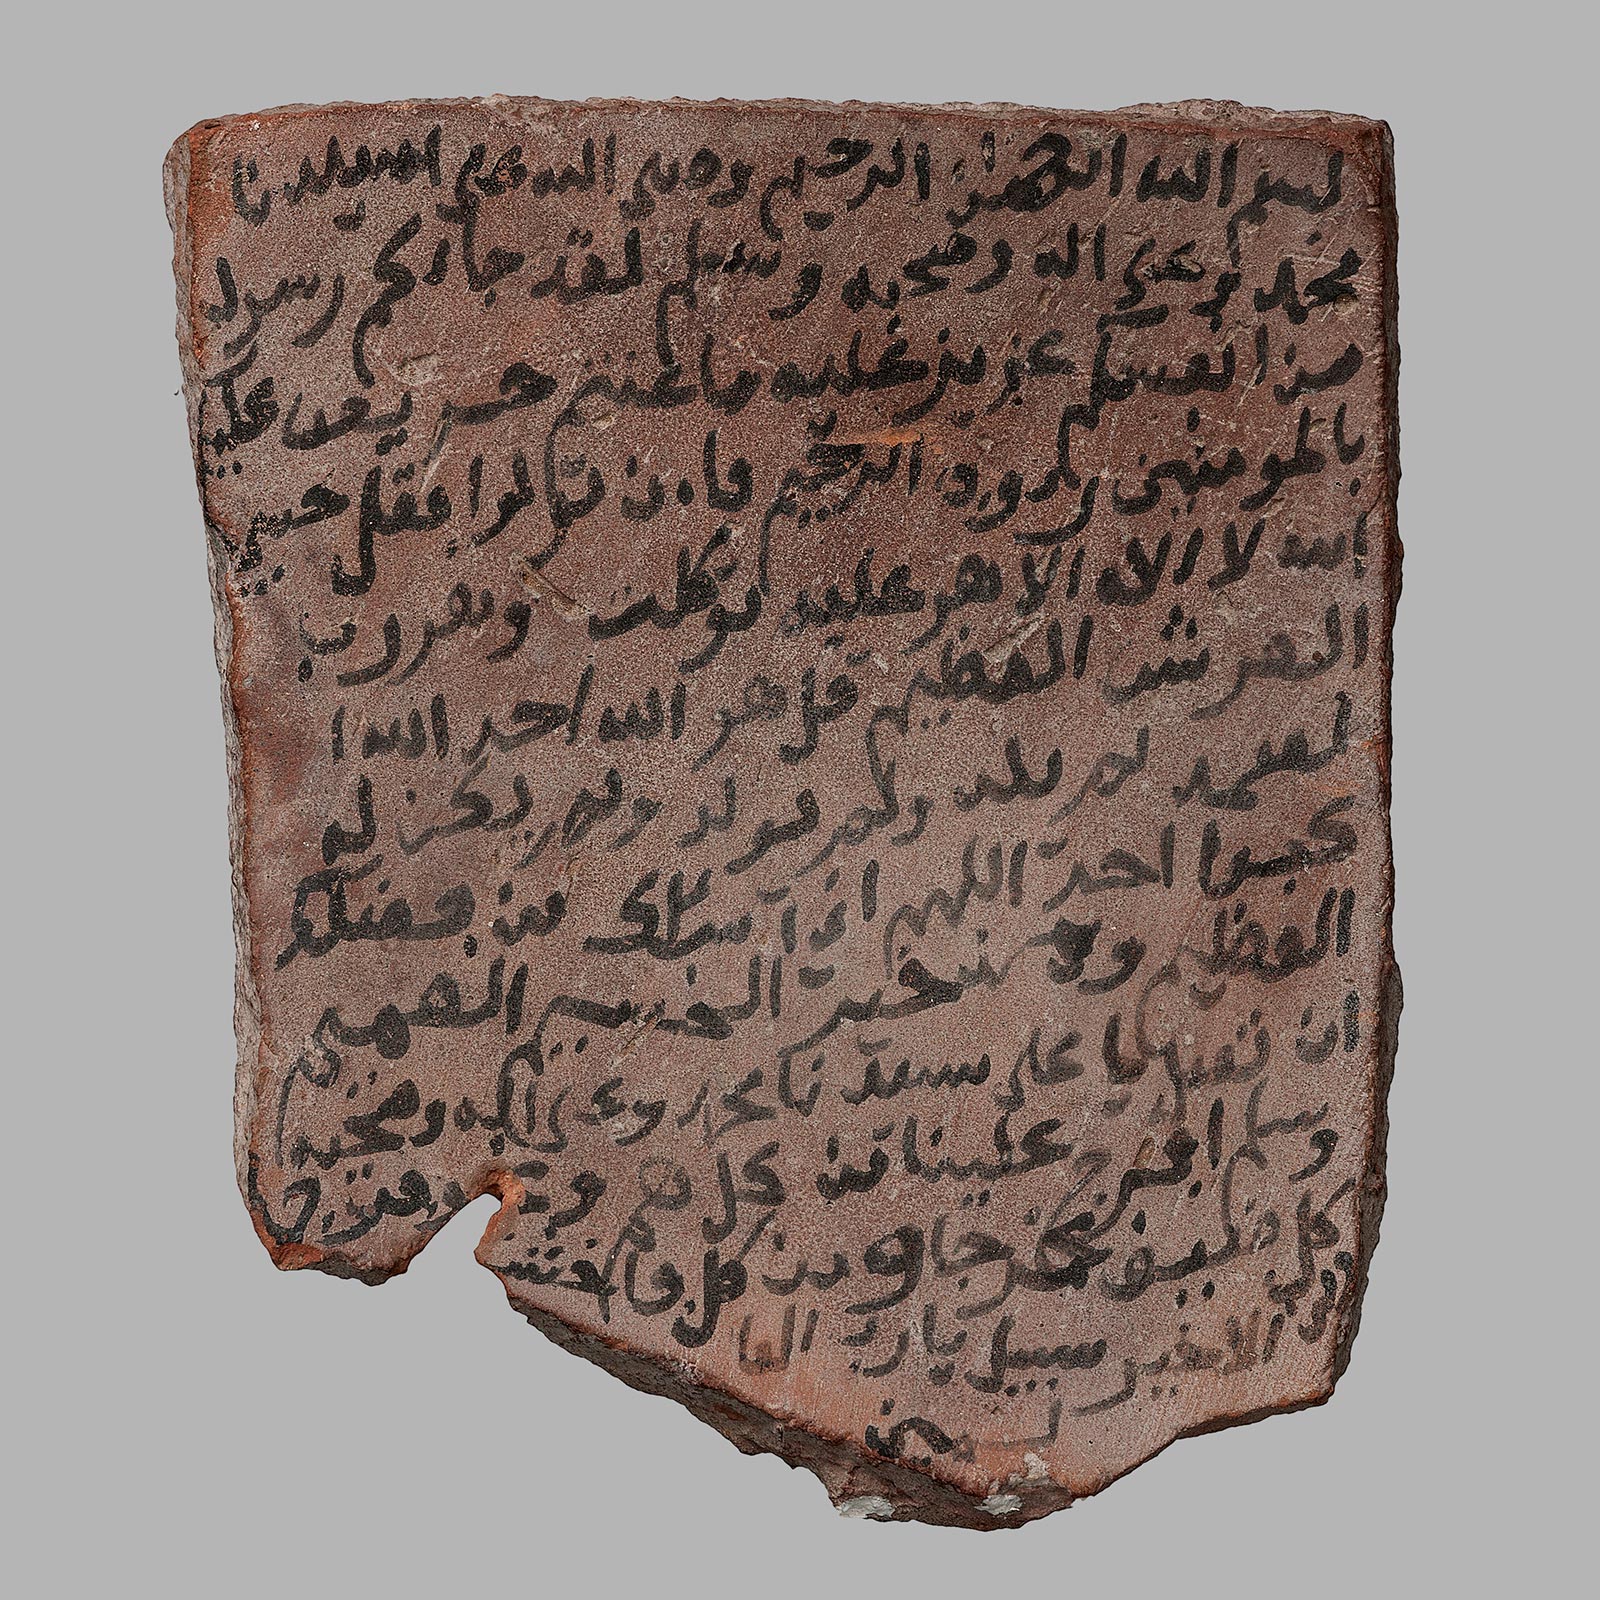 بسم الله الرحمن الرحيم وصلى الله على سيدنا
محمد وعلى اله وصحبه وسلم لقد جاءكم رسول
من انفسكم عزيز عليه ما عنتم حريص عليكم
بالمومنين روف الرحيم فان تولوا فقل حسبي
الله لا الاه الا هو عليه توكلت وهو رب
العرش العظيم قل هو الله احد الله ا
لصمد لم يلد ولم يولد ولم يكن له
كفوا احد اللهم اني اسالك من فضلك
العظيم و
ان تصلي على سيدنا محمد وعلى اله وصحبه
وسلم افرج علينا من كل هم و
كل ضيق مخرجا ومن كل فاحشة
الاخير سبيل يارب العا
لمين